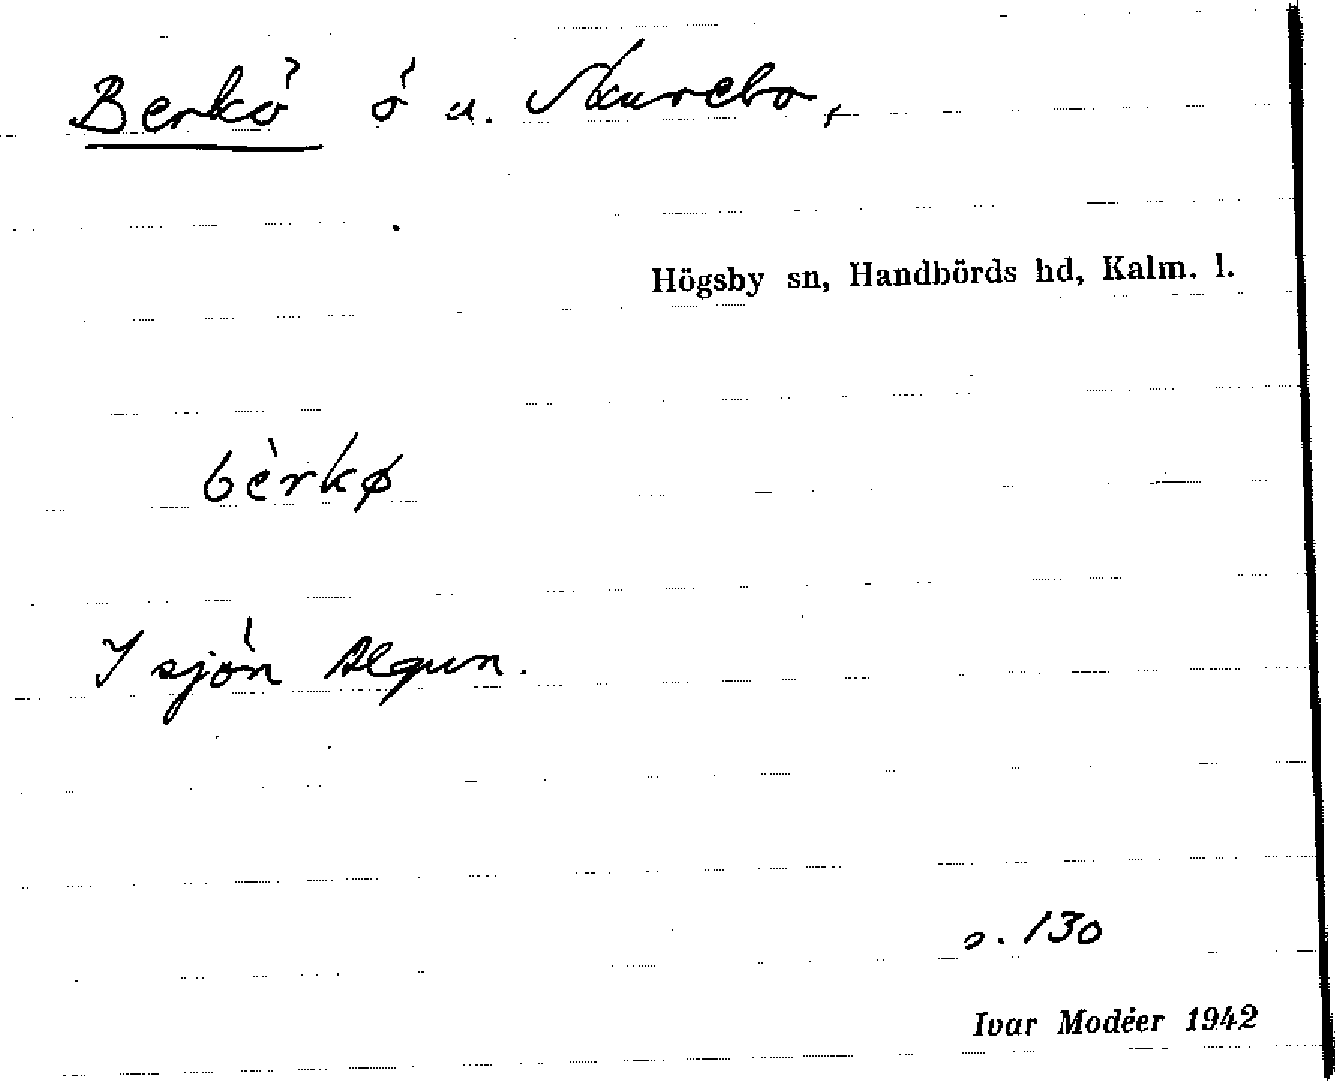 Berkö ö u. Skurebo,
Högsby sn, Handbörds hd, Kalm. l.
bèrkø
I sjön Algun.
s. 130
Ivar Modéer 1942